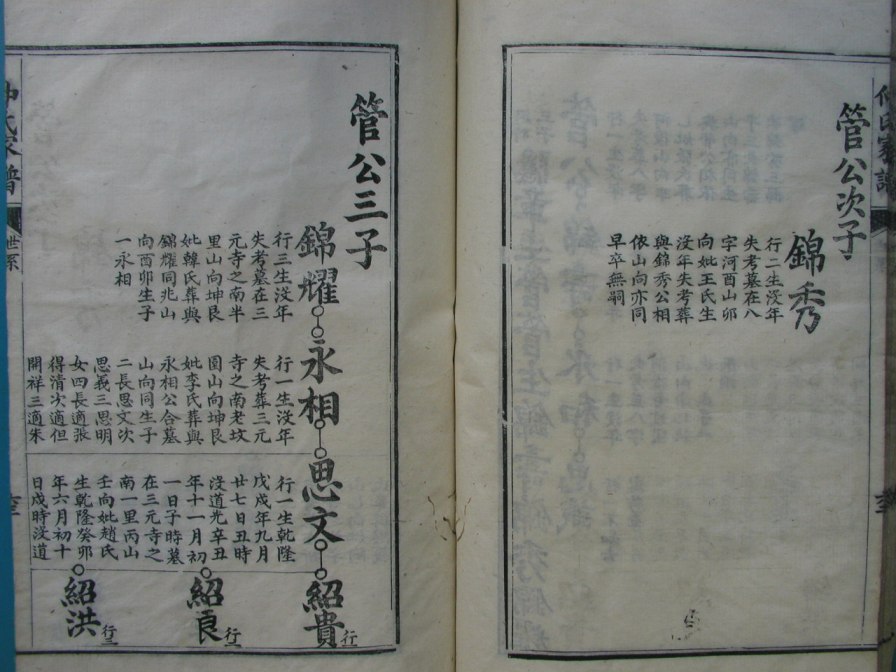 管公次子
錦秀
行二生沒年
失考墓在八
字河酉山卯
向妣王氏生
沒年失考葬
與錦秀公相
依山向亦同
早卒無嗣
管公三子
錦耀
行三生沒年
失考墓在三
元寺之南半
里山向坤艮
妣韓氏葬與
錦耀同兆山
向酉卯生子
一永相
永相
行一生沒年
失考葬三元
寺之南老坟
園山向坤艮
妣李氏葬與
永相公合墓
山向同生子
二長思文次
思義三思明
女四長適張
得清次適但
開祥三適朱
思文
行一生乾隆
戊戌年九月
廿七日丑時
沒道光辛丑
年十一月初
一日子時墓
在三元寺之
南一里丙山
壬向妣趙氏
生乾隆癸卯
年六月初十
日戌時沒道
紹貴
行一
紹良
行二
紹洪
行三
氏家譜
世系